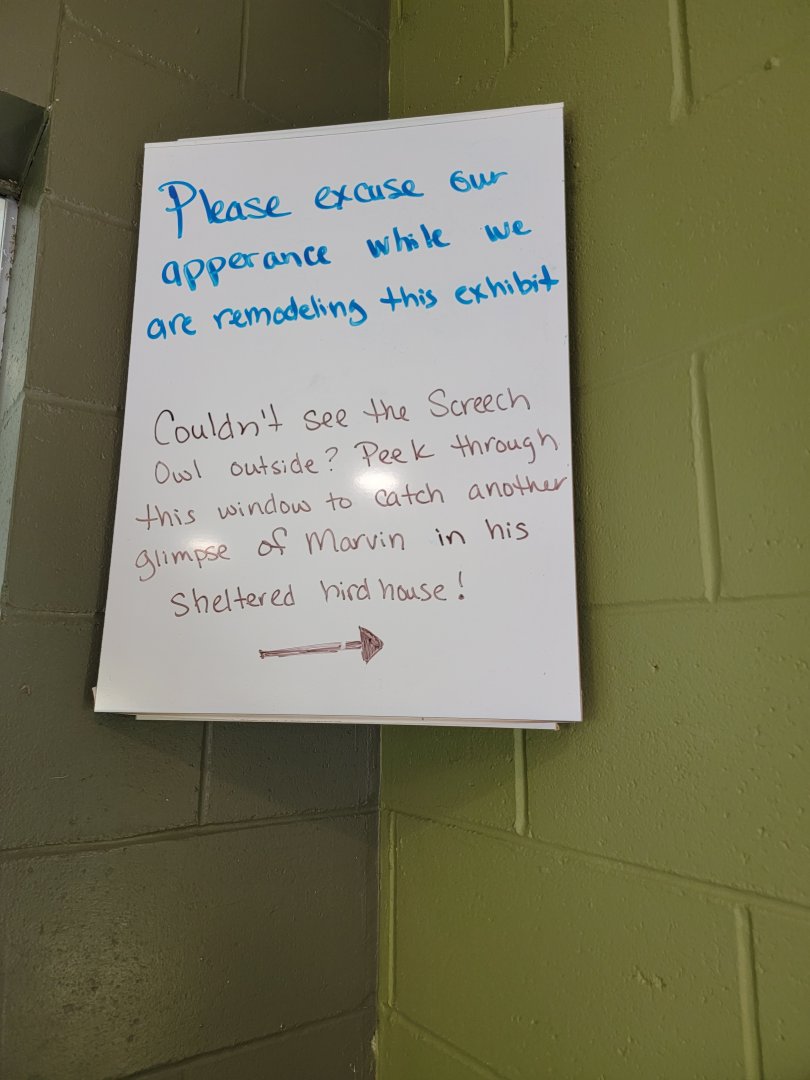 Please excuse our
apperance while we
are remodeling this exhibit
Couldn't see the Screech
Owl outside? Peek through
this window to catch another
glimpse of Marvin in his
sheltered birdhouse!